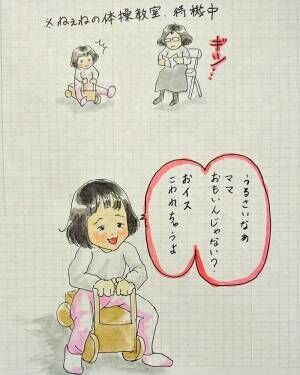 ※ねぇねの体操教室、待機中
ギシッ
うるさいなあ
ママ
おもいんじゃない?
おイス
こわれちゃうよ